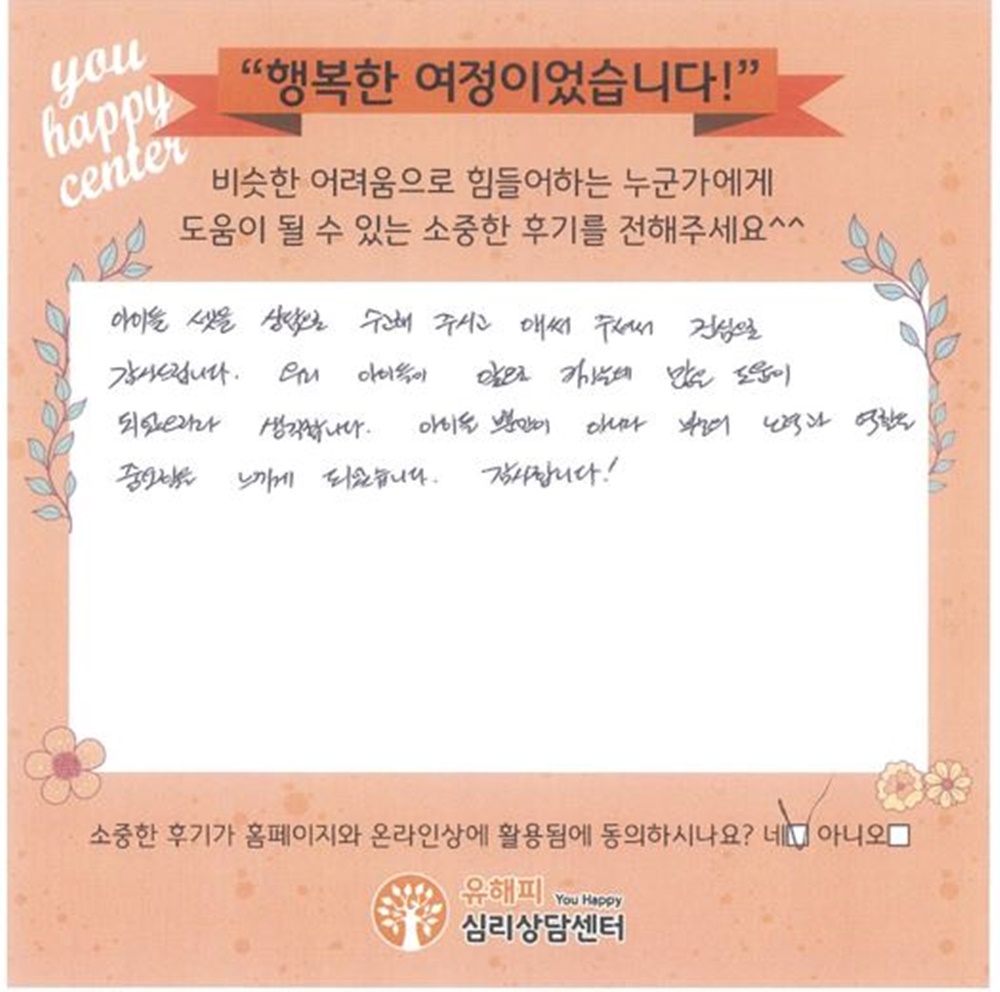 you
happy
center
“행복한 여정이었습니다!”
비슷한 어려움으로 힘들어하는 누군가에게
도움이 될 수 있는 소중한 후기를 전해주세요^^
아이들 셋을 상담으로 수고해 주시고 애써 주셔서 진심으로
감사드립니다. 우리 아이들이 앞으로 커가는데 많은 도움이
되었으리라 생각합니다. 아이들 뿐만이 아니라 부모의 노력과 역할도
중요함을 느끼게 되었습니다. 감사합니다!
소중한 후기가 홈페이지와 온라인상에 활용됨에 동의하시나요? 네☑ 아니오☐
유해피 You Happy
심리상담센터